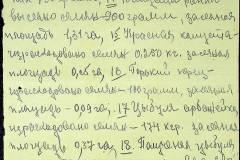 высеяно семян - 200 грамм, засеяная
площадь 1,31 га, 15 Красная капуста -
израсходовано семян 0,250 кг. засеяная
площадь 0,25 га, 16 Горький перец -
израсходовано семян - 100 грамм, засеяная
площадь - 0,09 га, 17 Цыбуля арбажейка
израсходовано семян - 174 кгр. засеяная
площадь 0,37 га, 18
цыбуля